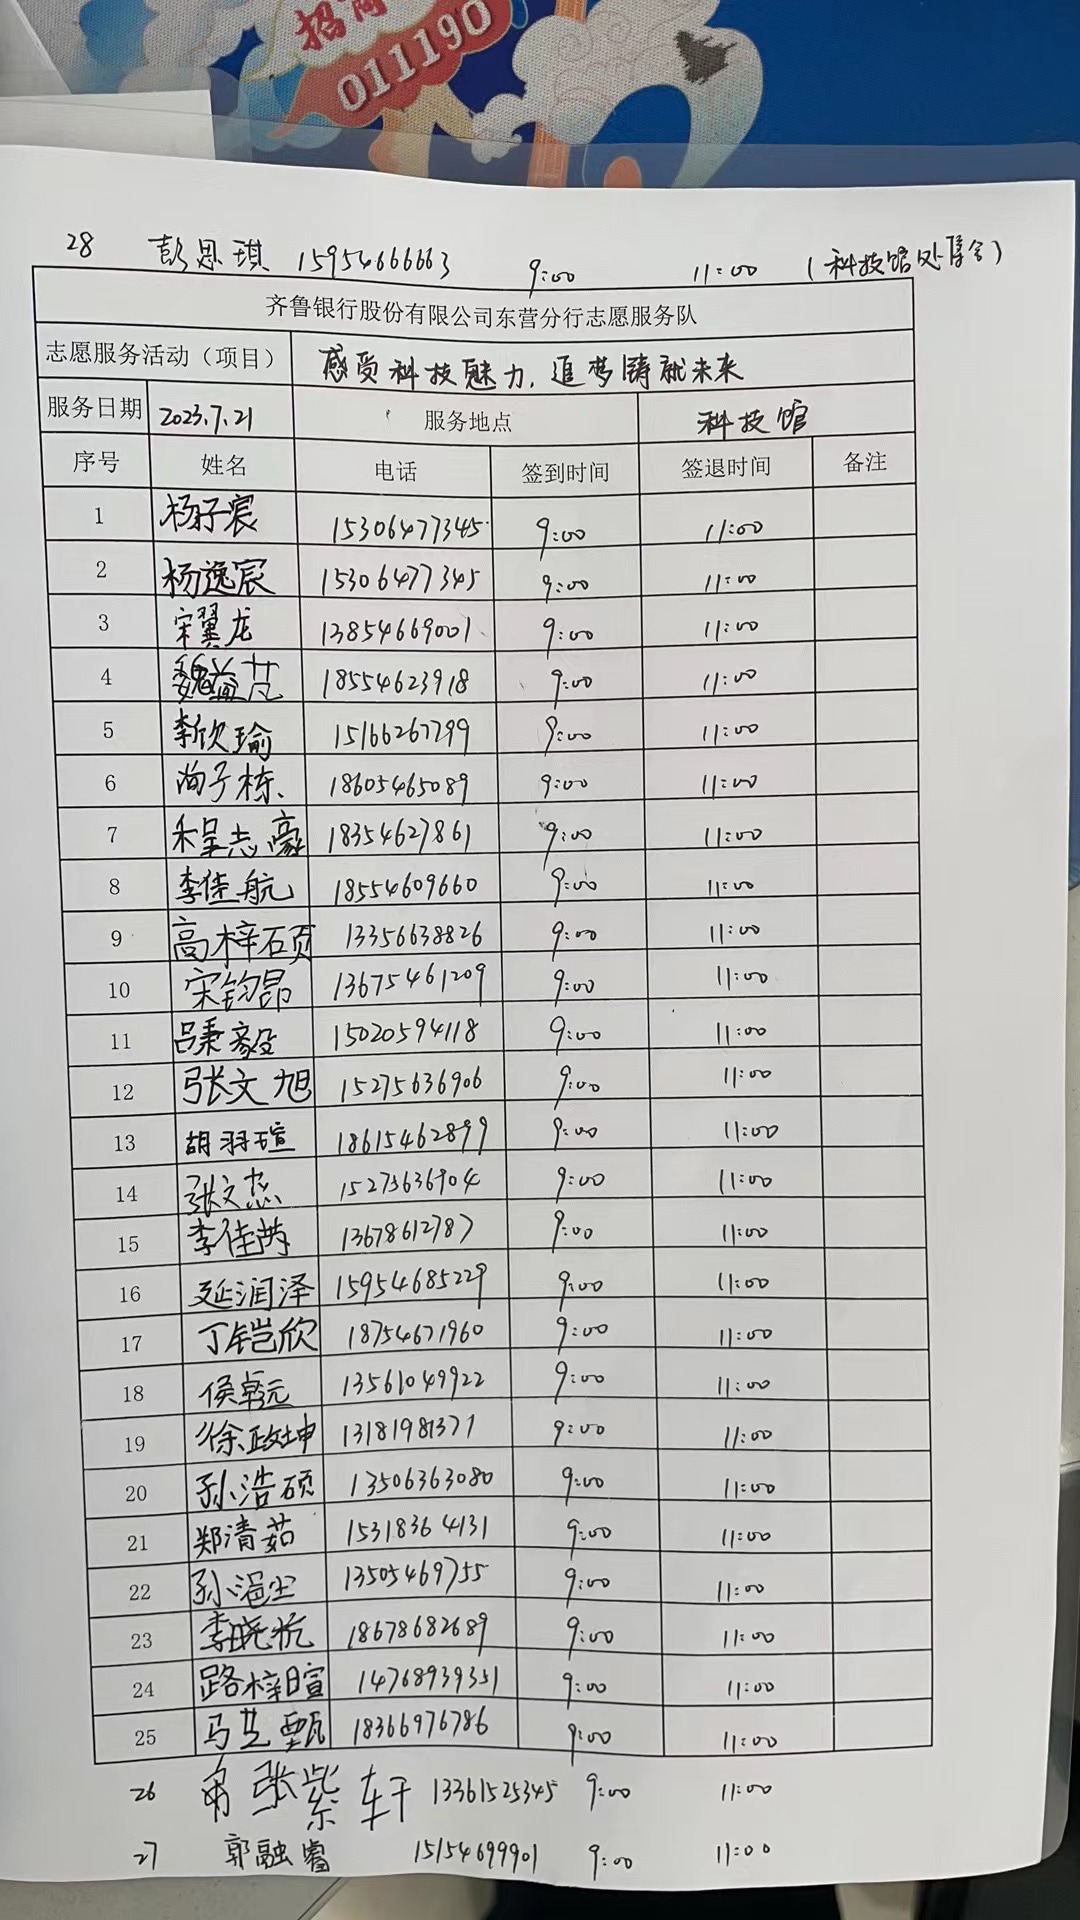 招商
011190
28 彭思琪 15954666663 9:00 11:00 (科技馆处集合)
齐鲁银行股份有限公司东营分行志愿服务队
志愿服务活动（项目） 感受科技魅力,追梦铸就未来
服务日期 2023.7.21 服务地点 科技馆
序号 姓名 电话 签到时间 签退时间 备注
1 杨子宸 15306477345 9:00 11:00
2 杨逸宸 15306477345 9:00 11:00
3 宋翼龙 13854669001 9:00 11:00
4 魏益芃 18554623918 9:00 11:00
5 李欣瑜 15166267799 9:00 11:00
6 尚子栋 18605465089 9:00 11:00
7 程志豪 18354627861 9:00 11:00
8 李佳航 18554609660 9:00 11:00
9 高梓硕 13356638826 9:00 11:00
10 宋钧昂 13675461209 9:00 11:00
11 吕秉毅 15020594118 9:00 11:00
12 张文旭 15275636906 9:00 11:00
13 胡羽瑄 18615462899 9:00 11:00
14 张文杰 15275636904 9:00 11:00
15 李佳芮 13678612787 9:00 11:00
16 延润泽 15954685229 9:00 11:00
17 丁铠欣 18754671960 9:00 11:00
18 侯乾元 13561049922 9:00 11:00
19 徐政坤 13181981371 9:00 11:00
20 孙浩硕 13506363080 9:00 11:00
21 郑清茹 15318364131 9:00 11:00
22 孙 13505469755 9:00 11:00
23 李晓 18678682689 9:00 11:00
24 路梓暄 14768939351 9:00 11:00
25 马艺甄 18366976786 9:00 11:00
26 张紫轩 13361525345 9:00 11:00
27 郭融睿 15154699901 9:00 11:00